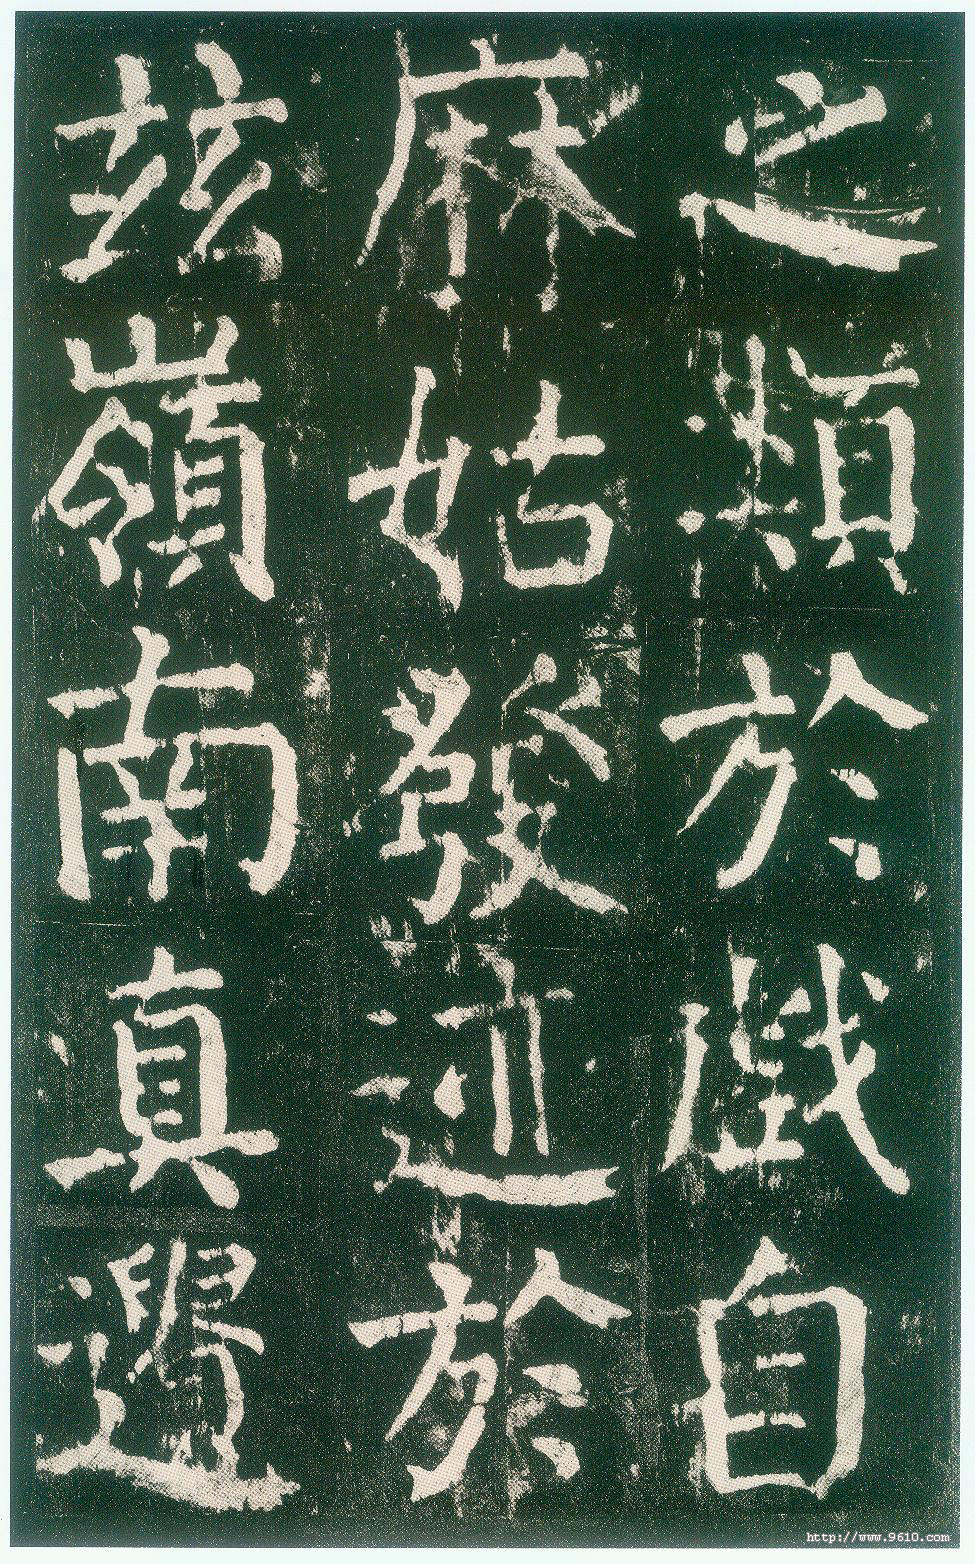 之類於戲自
麻姑發迹於
兹嶺南真遺
http://www.9610.com